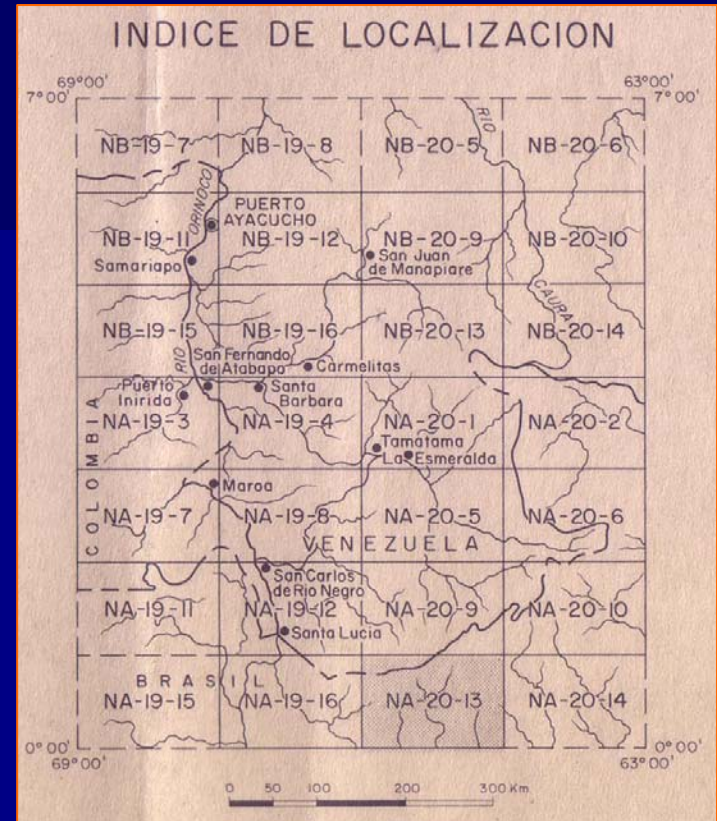 INDICE DE LOCALIZACION
69°00' 63°00'
7°00' 7°00'
NB-19-7 NB-19-8 NB-20-5 NB-20-6
RIO
ORINOCO
PUERTO
AYACUCHO
NB-19-11 NB-19-12 NB-20-9 NB-20-10
Samariapo
San Juan
de Manapiare
CAURA
NB-19-15 NB-19-16 NB-20-13 NB-20-14
RIO
San Fernando
de Atabapo
Carmelitas
Puerto
Inirida
Santa
Barbara
NA-19-3 NA-19-4 NA-20-1 NA-20-2
COLOMBIA
Tamatama
La Esmeralda
Maroa
NA-19-7 NA-19-8 NA-20-5 NA-20-6
VENEZUELA
San Carlos
de Rio Negro
NA-19-11 NA-19-12 NA-20-9 NA-20-10
Santa Lucia
BRASIL
NA-19-15 NA-19-16 NA-20-13 NA-20-14
0°00' 0°00'
69°00' 63°00'
0 50 100 200 300 Km